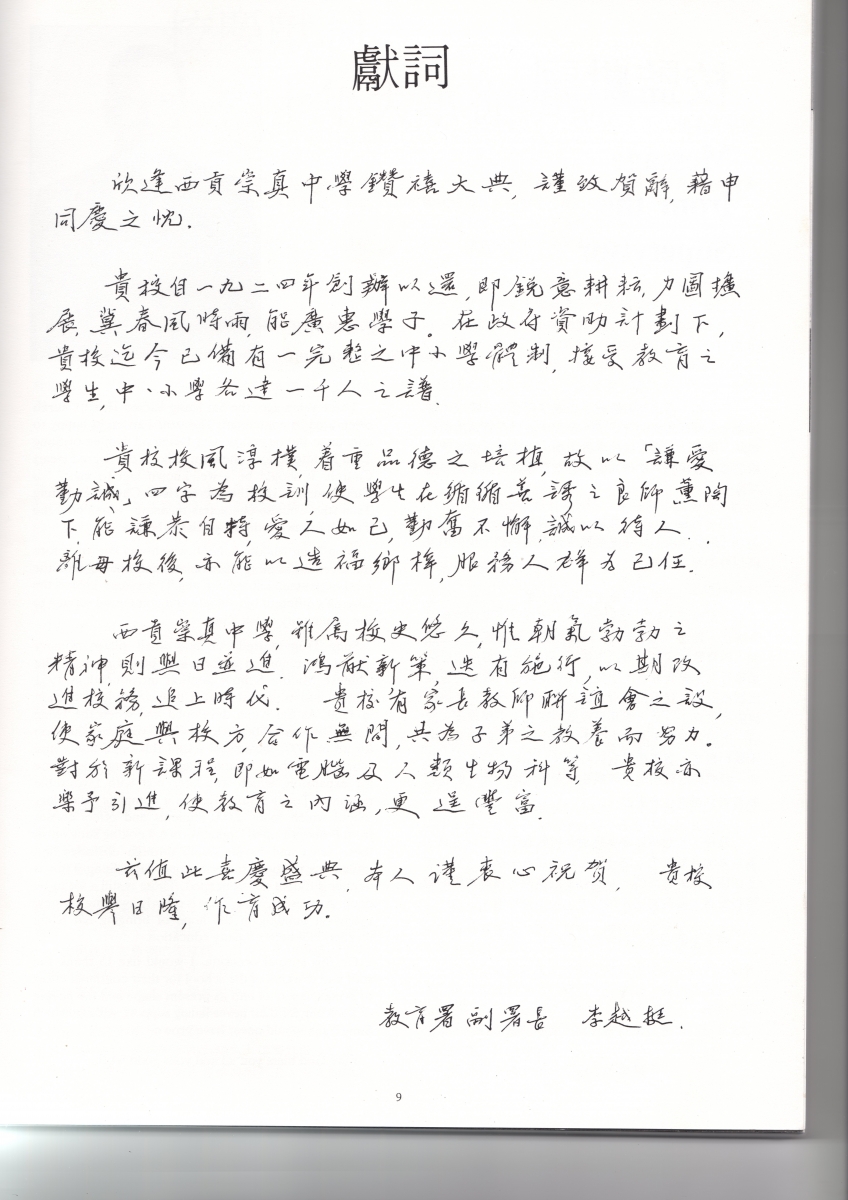 獻詞
欣逢西貢崇真中學鑽禧大典，謹致賀辭，藉申
同慶之忱．
貴校自一九二四年創辦以還，即銳意耕耘，力圖擴
展，冀春風時雨，能廣惠學子。在政府資助計劃下，
貴校迄今已備有一完整之中小學體制，接受教育之
學生，中、小學各達一千人之譜．
貴校校風淳樸，着重品德之培植，故以「謙愛
勤誠」四字為校訓，使學生在循循善誘之良師薰陶
下，能謙恭自持，愛人如己，勤奮不懈，誠以待人．
離母校後，亦能以造福鄉梓，服務人群為己任．
西貢崇真中學，雖屬校史悠久，惟朝氣勃勃之
精神，則與日並進．鴻猷新策，迭有施行，以期改
進校務，追上時代．　貴校有家長教師聯誼會之設，
使家庭與校方，合作無間，共為子弟之教養而努力。
對於新課程，即如電腦及人類生物科等，貴校亦
樂予引進，使教育之內涵，更逞豐富．
茲值此喜慶盛典，本人謹衷心祝賀，　貴校
校譽日隆，作育成功．
教育署副署長　李越挺．
9